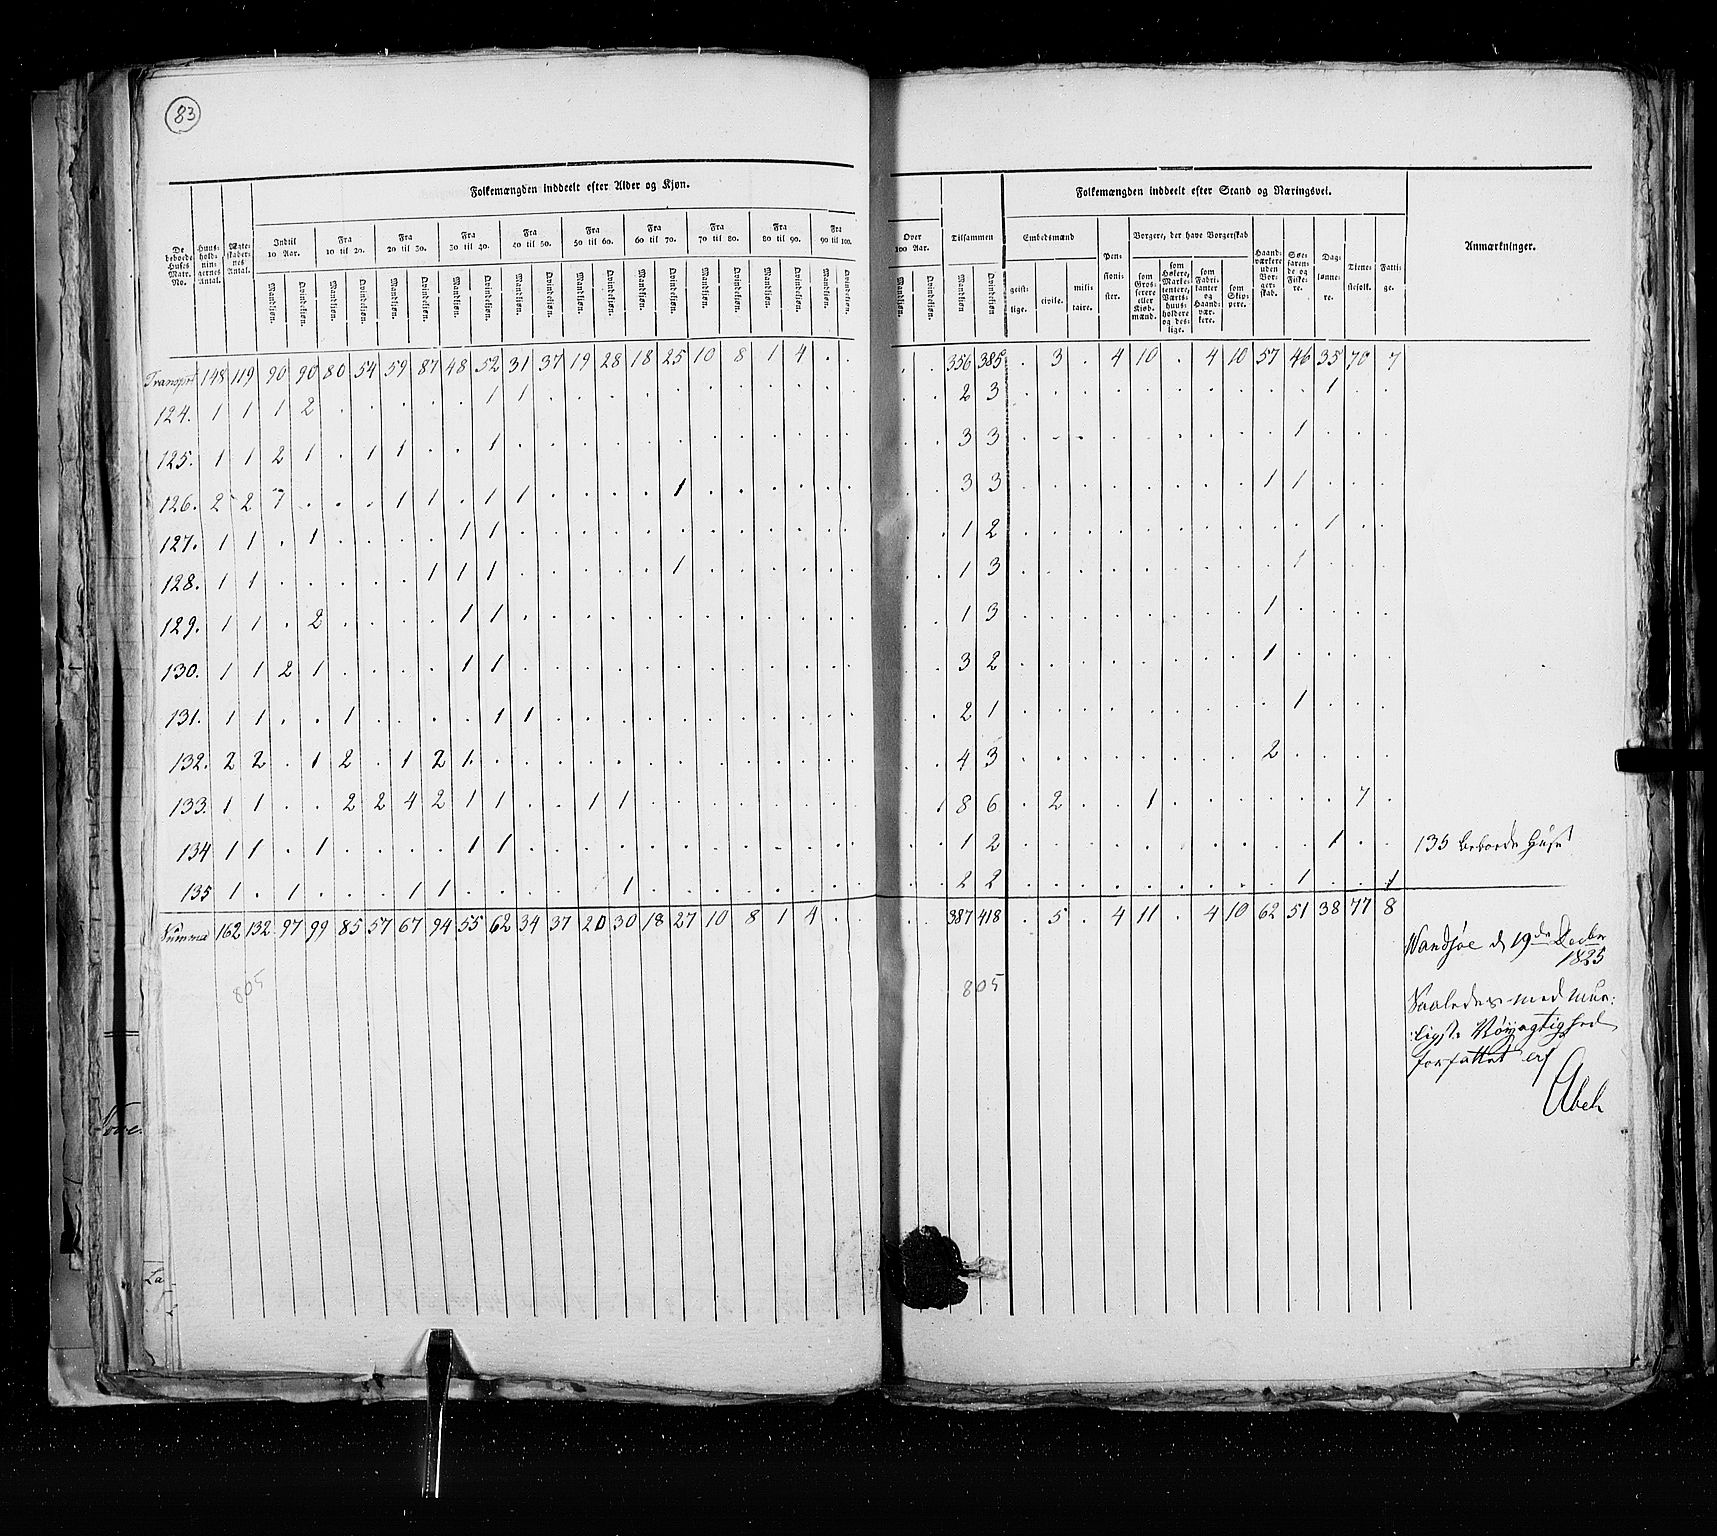 83
Folkemængden inddeelt efter Alder og Kjøn.
De beboede Huses Matr. No. | Huusholdningernes Antal. | Ægteskabernes Antal. | Indtil 10 Aar. | Fra 10 til 20. | Fra 20 til 30. | Fra 30 til 40. | Fra 40 til 50. | Fra 50 til 60. | Fra 60 til 70. | Fra 70 til 80. | Fra 80 til 90. | Fra 90 til 100.
Mandkjøn. Qvindekjøn. Mandkjøn. Qvindekjøn. Mandkjøn. Qvindekjøn. Mandkjøn. Qvindekjøn. Mandkjøn. Qvindekjøn. Mandkjøn. Qvindekjøn. Mandkjøn. Qvindekjøn. Mandkjøn. Qvindekjøn. Mandkjøn. Qvindekjøn. Mandkjøn. Qvindekjøn.
Transport 148 119 90 90 80 54 59 87 48 52 31 37 19 28 18 25 10 8 1 4 . .
124. 1 1 1 2 . . . . . 1 1 . . . . . . . . . . .
125. 1 1 2 1 . 1 1 . . 1 . . . . . . . . . . . .
126. 2 2 7 . . . 1 1 . 1 1 . . . . 1 . . . . . .
127. 1 1 . 1 . . . . 1 1 . . . . . . . . . . . .
128. 1 1 . . . . . 1 1 1 . . . . . 1 . . . . . .
129. 1 1 . 2 . . . . 1 1 . . . . . . . . . . . .
130. 1 1 2 1 . . . . 1 1 . . . . . . . . . . . .
131. 1 1 . . 1 . . . . 1 1 . . . . . . . . . . .
132. 2 2 . 1 2 . 1 2 1 . . . . . . . . . . . . .
133. 1 1 . . 2 2 4 2 1 1 . . 1 1 . . . . . . . .
134 1 1 . 1 . . . . 1 1 . . . . . . . . . . . .
135 1 . 1 . . . 1 1 . . . . . 1 . . . . . . . .
Summa 162 132 97 99 85 57 67 94 55 62 34 37 20 30 18 27 10 8 1 4 . .
805
Folkemængden inddeelt efter Stand og Næringsvei.
Over 100 Aar. | Tilsammen | Embedsmænd | Pensionister. | Borgere, der have Borgerskab | Haandværkere uden Borgerskab. | Søefarende og Fiskere. | Daglønnere. | Tienestefolk. | Fattige. | Anmærkninger.
Mandkjøn. Qvindekjøn. Mandkjøn Qvindekjøn geistlige. civile. militaire. som Grosserere eller Kjøbmænd. som Høkere, Marketentere, Vertshuusholdere og deslige. som Fabrikanter og Haandværkere. som Skippere.
. . 356 385 . 3 . 4 10 . 4 10 57 46 35 70 7
. . 2 3 . . . . . . . . . . 1 . .
. . 3 3 . . . . . . . . . 1 . . .
. . 3 3 . . . . . . . . 1 1 . . .
. . 1 2 . . . . . . . . . . 1 . .
. . 1 3 . . . . . . . . . 1 . . .
. . 1 3 . . . . . . . . 1 . . . .
. . 3 2 . . . . . . . . 1 . . . .
. . 2 1 . . . . . . . . . 1 . . .
. . 4 3 . . . . . . . . 2 . . . .
. . 8 6 . 2 . . 1 . . . . . . 7 .
. . 1 2 . . . . . . . . . . 1 . . 135 beboede Huse
. . 2 2 . . . . . . . . . 1 . . 1
. . 387 418 . 5 . 4 11 . 4 10 62 51 38 77 8
805
d 19de Decbr
1825
Saaledes med mue:
:ligste Nøyagtighed
forfattet af